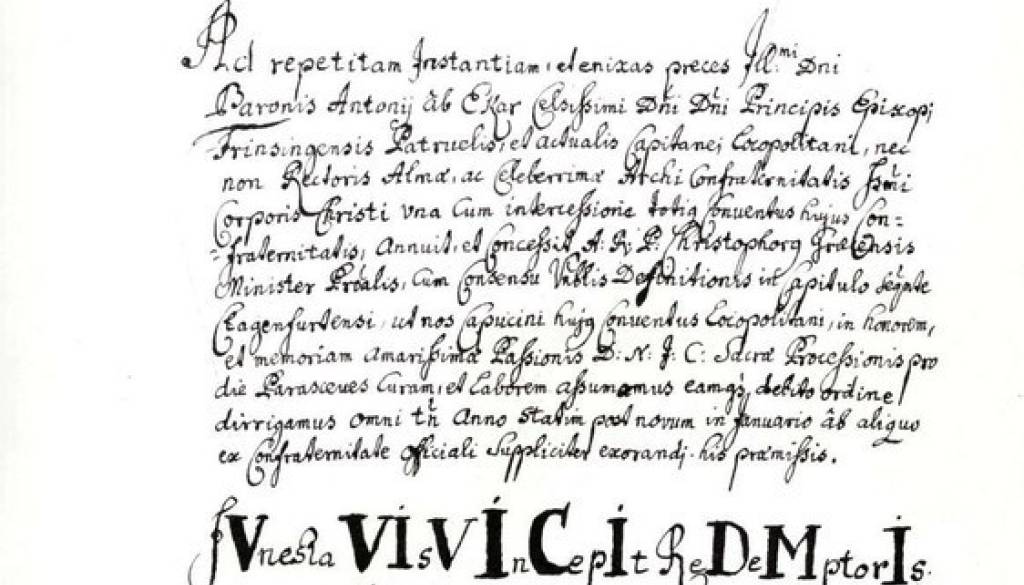 Ad repetitam Instantiam, et enixas preces Ill:mi Dni
Baronis Antonij ab Ekar Celsissimi Dni Dni Principis Episcopi
Frinsingensis Patruelis, et actualis Capitanei Locopolitani, nec
non Rectoris Almæ, ac Celeberrimæ Archi Confraternitatis Ssmi
Corporis Christi una Cum intercessione totiq Conventus hujus Con-
-fraternitatis, Annuit, et Concessit A: R: P: Christophorq Græcensis
Minister Prõalis, Cum Consensu Vnblis Definitionis in Capitulo
Clagenfurtensi, ut nos Capucini hujq Conventus Locopolitani, in honorem,
et memoriam amarissimæ Passionis D: N: J: C: Sacræ Processionis pro
die Parasceves Curam, et Laborem assumamus eamq, debito ordine
dirrigamus omni tñ Anno Statim post novum in Januario ab aliquo
ex Confraternitate Officiali Suppliciter exorandi. his præmissis.
fVnesta VIsV InCepIt ReDeMptorIs.